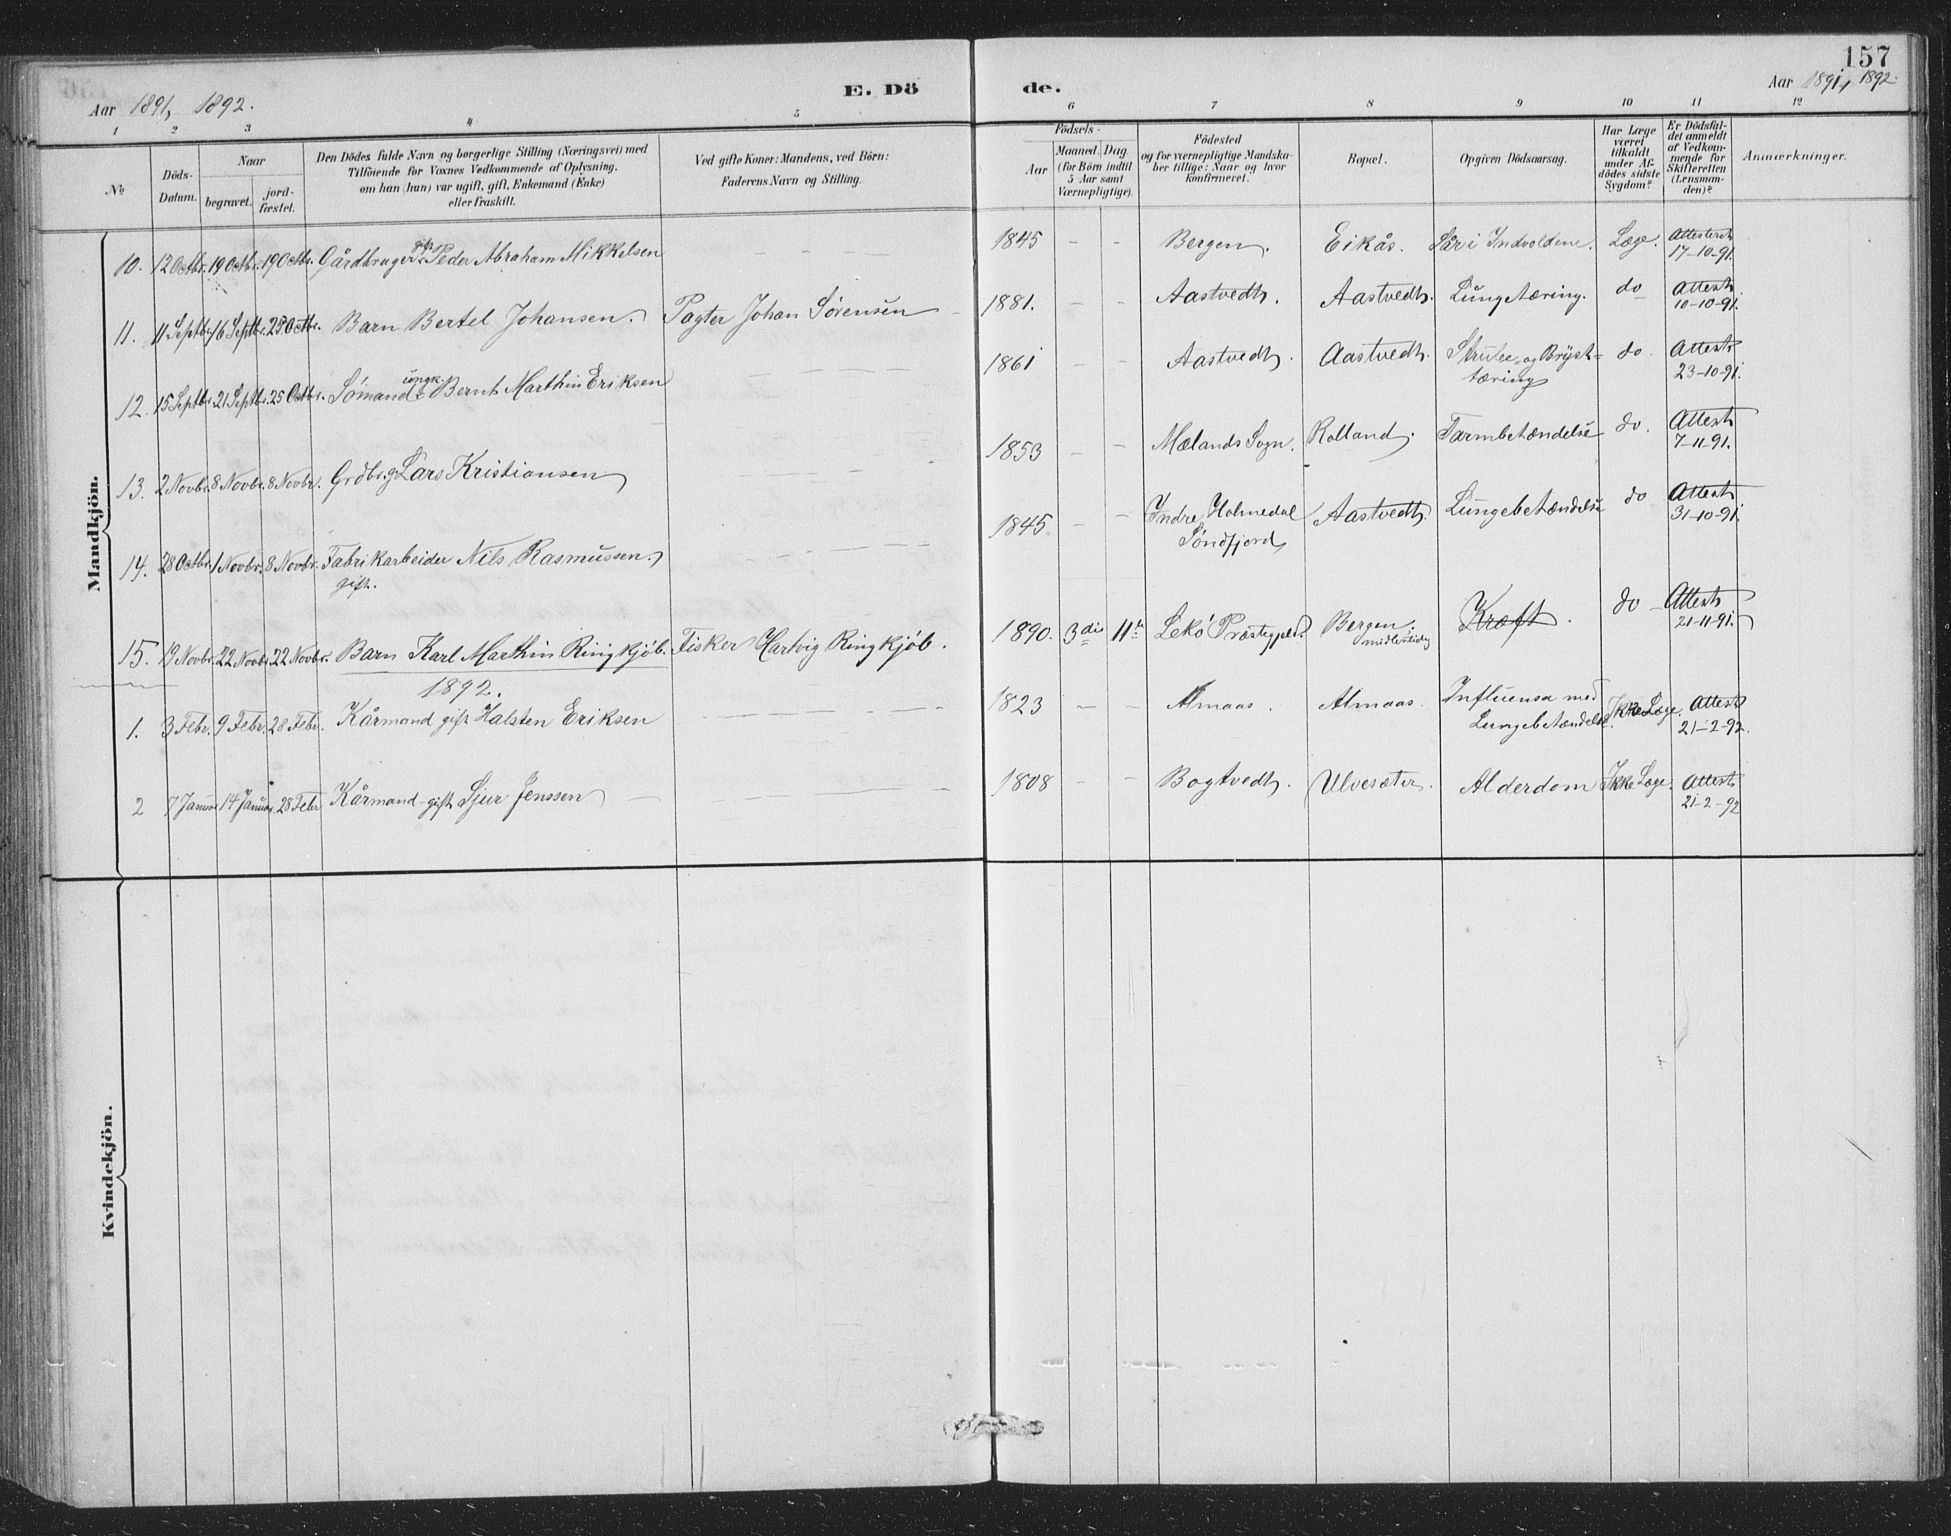 157
Aar 1891, 1892.
E. Dö
de.
Aar 1891, 1892.
1 2 3 4 5 6 7 8 9 10 11 12
No
Döds-
Datum.
Naar
begravet.
jord-
fæstet.
Den Dödes fulde Navn og borgerlige Stilling (Næringsvei) med
Tilföiende for Voxnes Vedkommende af Oplysning,
om han (hun) var ugift, gift, Enkemand (Enke)
eller fraskilt.
Ved gifte Koner: Mandens, ved Börn:
Faderens Navn og Stilling.
Födsels-
Aar
Maaned. Dag.
(for Börn indtil
5 Aar samt
Værnepligtige).
Födested
og for værnepligtige Mandska-
ber tillige: Naar og hvor
konfirmeret.
Bopæl.
Opgiven Dödsaarsag.
Har Læge
været
tilkaldt
under Af-
dödes sidste
Sygdom?
Er Dödsfal-
det anmeldt
af Vedkom-
mende for
Skifteretten
(Lensman-
den)?
Anmærkninger.
Mandkjön.
10. 12 Octbr. 19 Octbr. 19 Octbr. Gårdbruger gift Peder Abraham Mikkelsen — — — 1845 – – Bergen. Eikås. Sår i Indvoldene. Læge. Attesterst
17-10-91.
11. 11 Septbr. 16 Septbr. 25 Octbr. Barn Bertel Johansen. Pagter Johan Sörensen – 1881. – – Aastvedt. Aastvedt. Lungetæring. do Attest
10-10-91.
12. 15 Septbr. 21 Septbr. 25 Octbr. Sömand ungk. Bernt Marthin Eriksen — — — 1861 – – Aastvedt. Aastvedt. Strube- og Bryst-
tæring do. Attest
23-10-91.
13. 2 Novbr. 8 Novbr. 8 Novbr. Grdbr. g. Lars Kristiansen — — — 1853 – Mælands Sogn. Rolland. Tarmbetændelse do. Attest
7-11-91.
14. 28 Octbr. 1 Novbr. 8 Novbr. Fabrikarbeider Nils Rasmussen.
gift. — — — 1845 – – Indre Holmedal
Söndfjord Aastvedt. Lungebetændelse do Attest
31-10-91.
15. 19 Novbr. 22 Novbr. 22 Novbr. Barn Karl Marthin Ringkjöb. Fisker Hartvig Ringkjöb. 1890. 3die 11te Lekö Præstegjeld. Bergen.
midlertidig Kræft. do – Attest
21-11-91.
1892.
1. 3 Febr. 9 Febr. 28 Febr. Kårmand gift Halsten Eriksen — — — 1823 – – Almaas. Almaas. Influensa med
Lungebetændelse. Ikke Læge. Attest
21-2-92.
2 7 Januar 14 Januar. 28 Febr Kårmand gift Sjur Jenssen — — — 1808 – – Bogtvedt. Ulvesæter. Alderdom Ikke Læge. Attest
21-2-92
Kvindekjön.